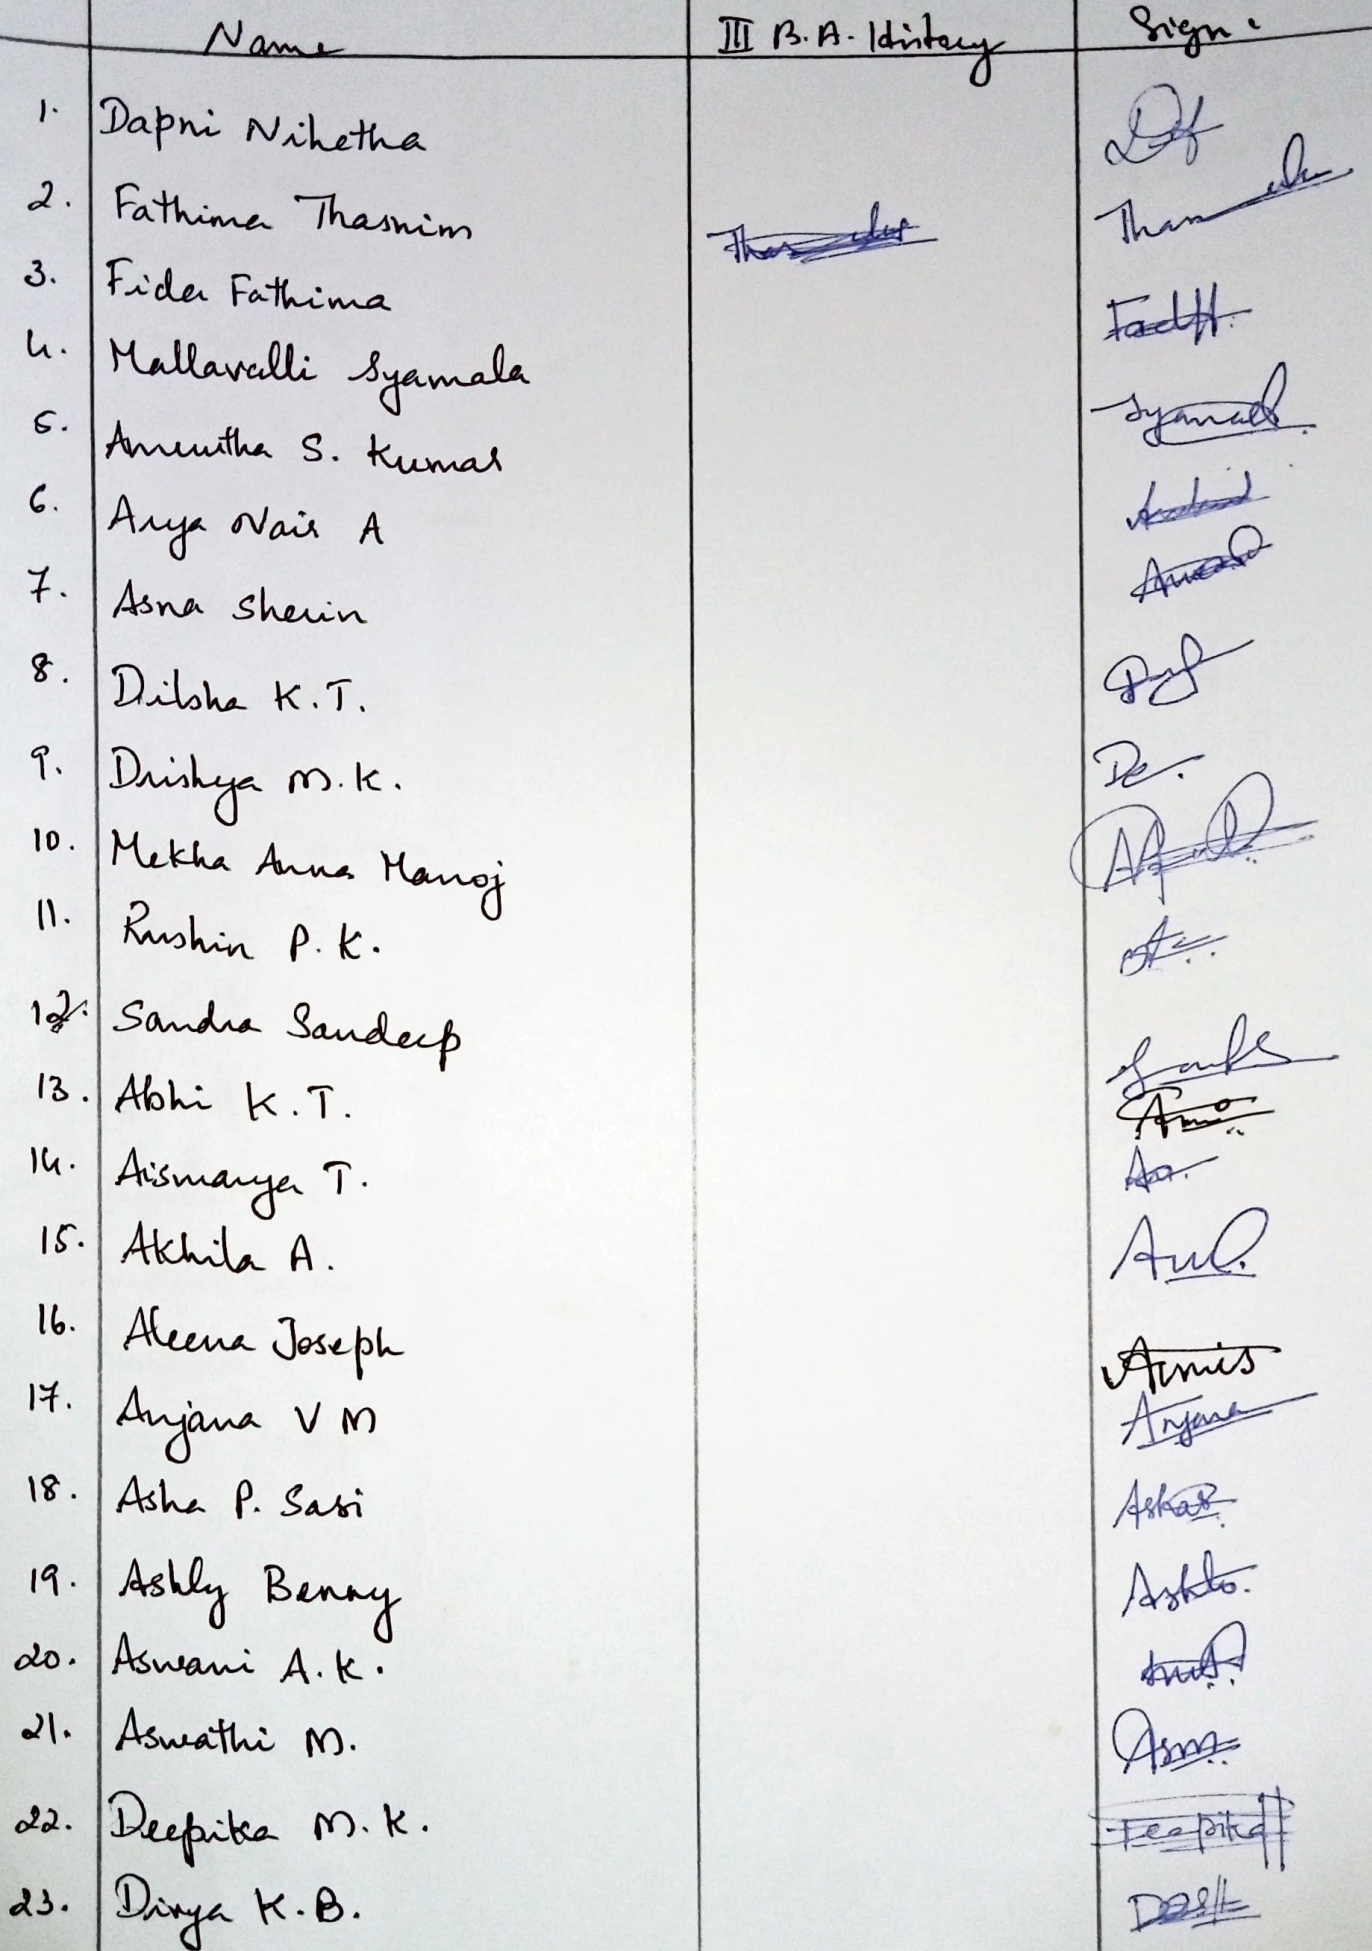 Name III B.A. History Sign.
1. Dapni Nihetha
2. Fathima Thasnim
3. Fida Fathima
4. Mallavalli Syamala Syamala
5. Amrutha S. Kumar
6. Arya Nair A
7. Asna Sherin
8. Dilsha K.T.
9. Drishya M.K.
10. Mekha Anna Manoj
11. Rushin P.K.
12. Sandra Sandeep
13. Abhi K.T.
14. Aiswarya T.
15. Akhila A.
16. Aleena Joseph
17. Anjana V M Anjana
18. Asha P. Sasi
19. Ashly Benny
20. Aswani A.K.
21. Aswathi M. Asm
22. Deepika M.K. Deepika
23. Divya K.B.